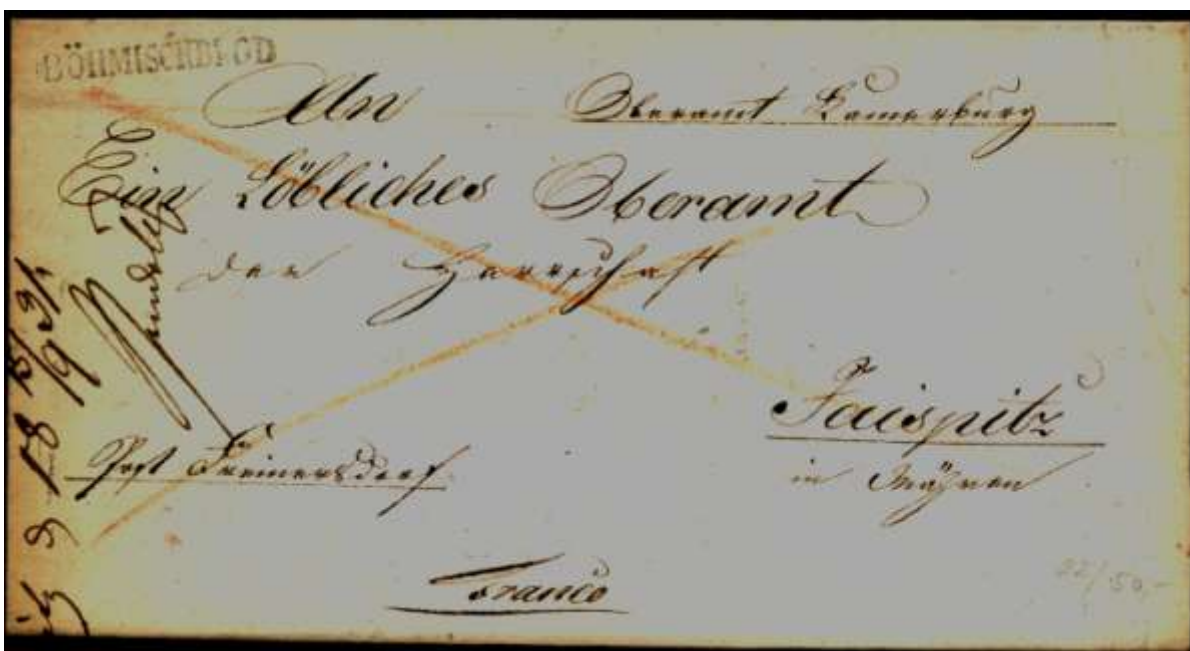 BÖHMISCHBROD
An
Oberamt Kamerburg
Ein Löbliches Oberamt
der Herrschaft
Jaispitz
in Mähren
Post Freinersdorf
Franco
22/ 50,-